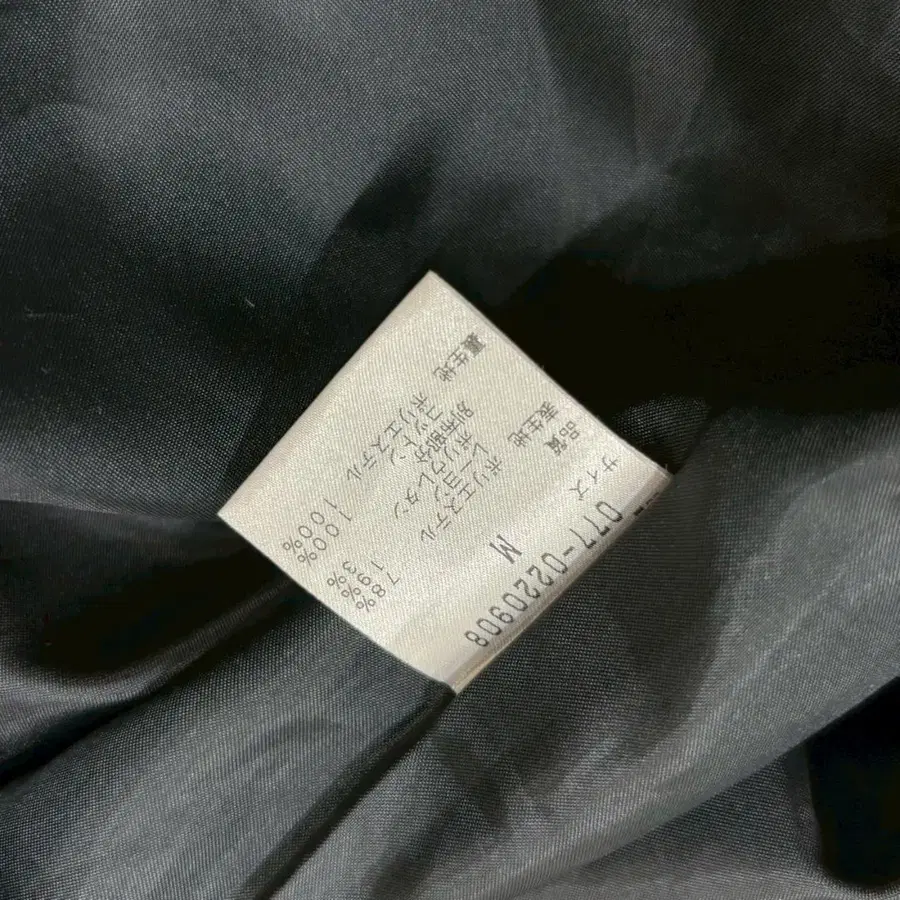 077-0220908
サイズ M
品質
表生地 ポリエステル 78%
レーヨン 19%
ポリウレタン 3%
別布部分
コットン 100%
裏生地 ポリエステル 100%